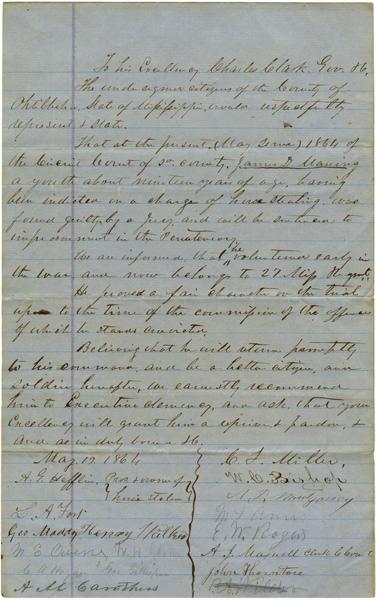 To his Excellency Charles Clark, Gov. &c,
The undersigned citizens of the County of
Oktibbeha, State of Mississippi, would respectfully
represent & state.
That at the present (May term) 1864
of the Circuit Court of sd. county, James D.
a youth about nineteen years of age, having
been indicted on a charge of horse stealing, was
found guilty by a jury, and will be sentenced to
imprisonment in the Penitentiary.
We are informed, that he volunteered early in
the war and now belongs to 27 Miss Regmt.
He proved a fair character on the trial
up to the time of the commission of the offence
of which he stands convicted.
Believing that he will return promptly
to his command, and be a better citizen, and
soldier hereafter, we earnestly recommend
him to Executive clemency, and ask, that your
Excellency will grant him a reprieve & pardon, &
and as in duty bound &c.
May 12. 1864
A. G. Hefflin, Pros & owner of
horse stolen
L. A.
Geo Henry
M E
A M Carothers
C. L. Miller,
W. C. Bishop
E. W. Rogers
A. J. Maxwell Clerk C Court
John